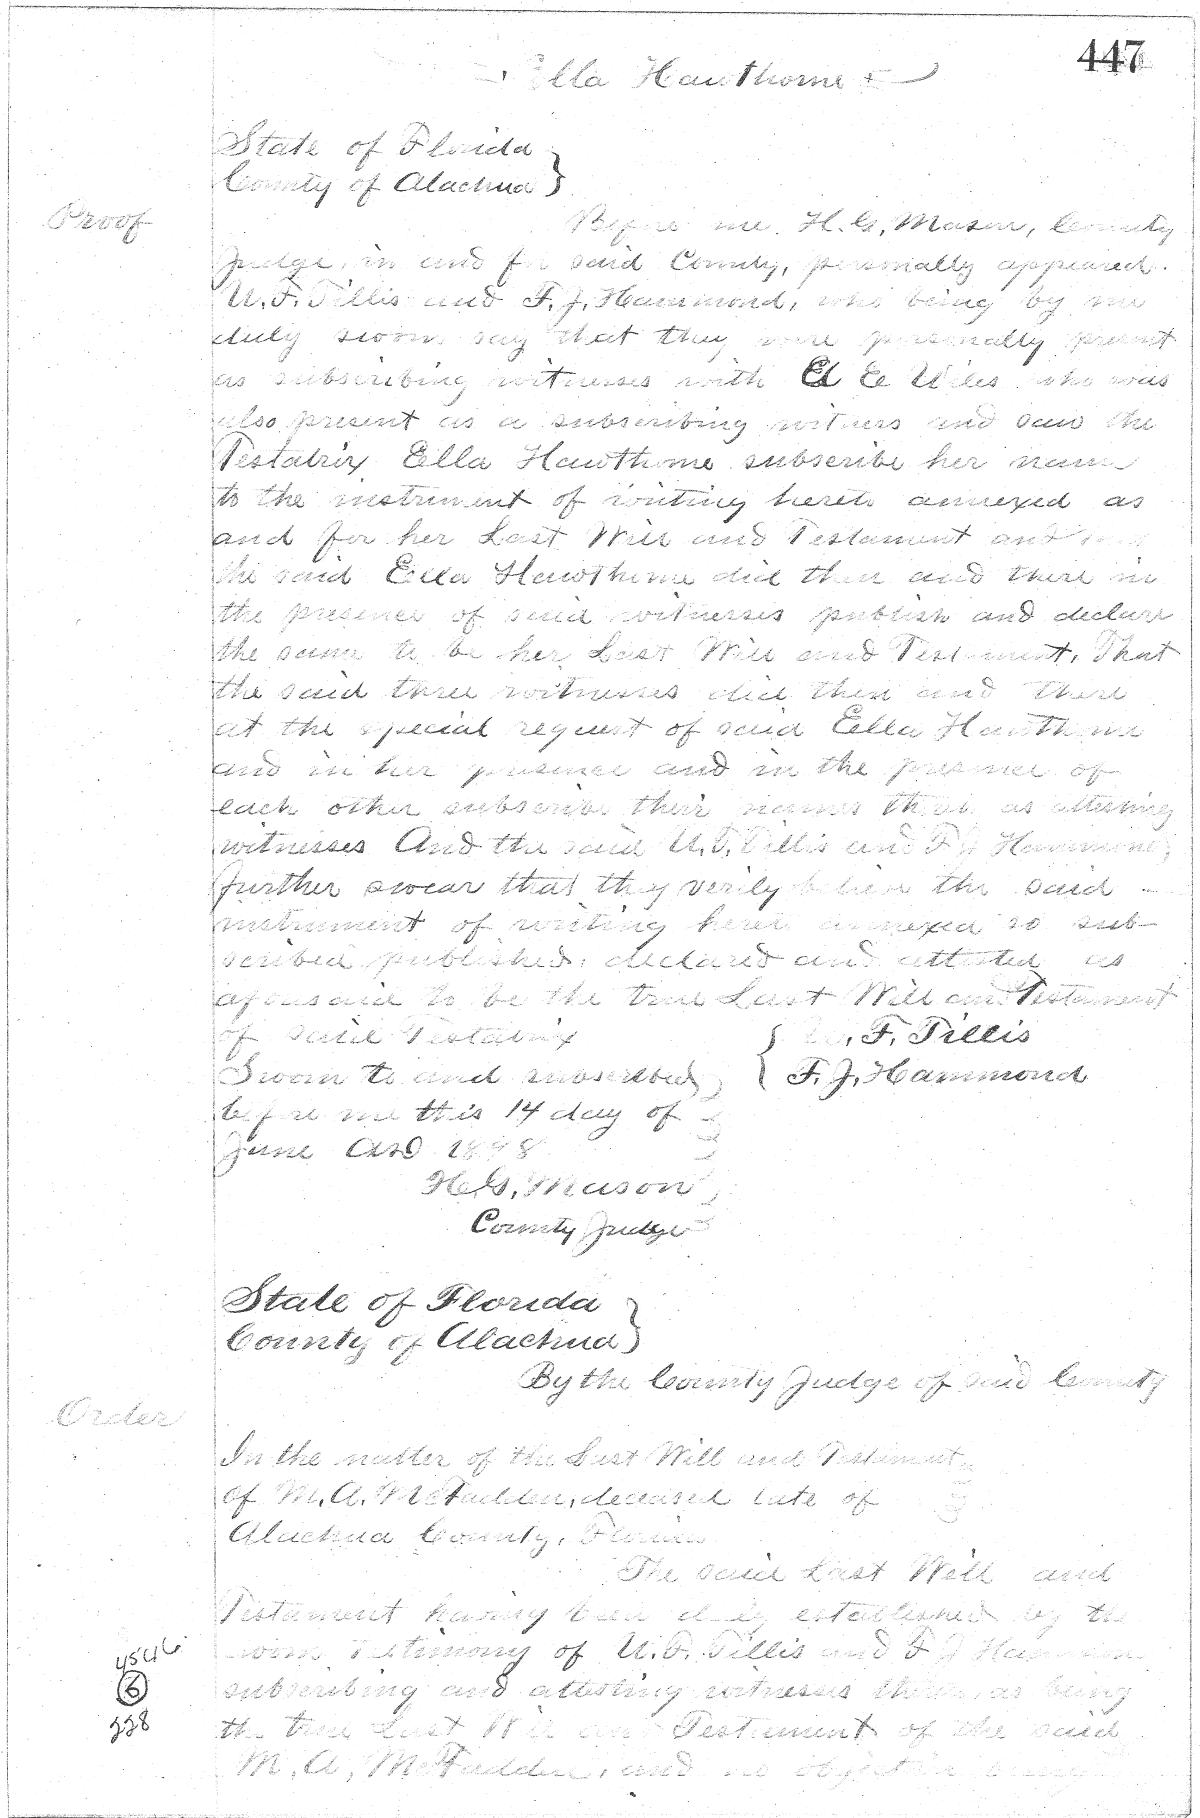 447
Ella Hawthorne
State of Florida
County of Alachua }
Proof
Before me H. G. Mason, County
Judge, in and for said County, personally appeared.
U. F. Tillis and F. J. Hammond, who being by me
duly sworn say that they were personally present
as subscribing witnesses with Ed E Wiles who was
also present as a subscribing witness and saw the
Testatrix Ella Hawthorne subscribe her name
to the instrument of writing hereto annexed as
and for her Last Will and Testament and
the said Ella Hawthorne did then and there in
the presence of said witnesses publish and declare
the same to be her Last Will and Testament, That
the said three witnesses did then and there
at the special request of said Ella Hawthorne
and in her presence and in the presence of
each other subscribe their names as attesting
witnesses And the said U. F. Tillis and F J Hammond,
further swear that they verily believe the said
instrument of writing hereto annexed so sub-
scribed published, declared and attested as
aforesaid to be the true Last Will and Testament
of said Testatrix
{ U. F. Tillis
F. J. Hammond
Sworn to and subscribed
before me this 14 day of
June AD 1898
H. G. Mason
County Judge
State of Florida
County of Alachua }
By the County Judge of said County
Order
In the matter of the Last Will and Testament
of M. A. McFadden, deceased late of
Alachua County, Florida
The said Last Will and
Testament having been duly established by the
sworn testimony of U. F. Tillis and F J Hammond
subscribing and attesting witnesses as being
the true Last Will and Testament of the said
M. A. McFadden, and no objection being
4546
6
228